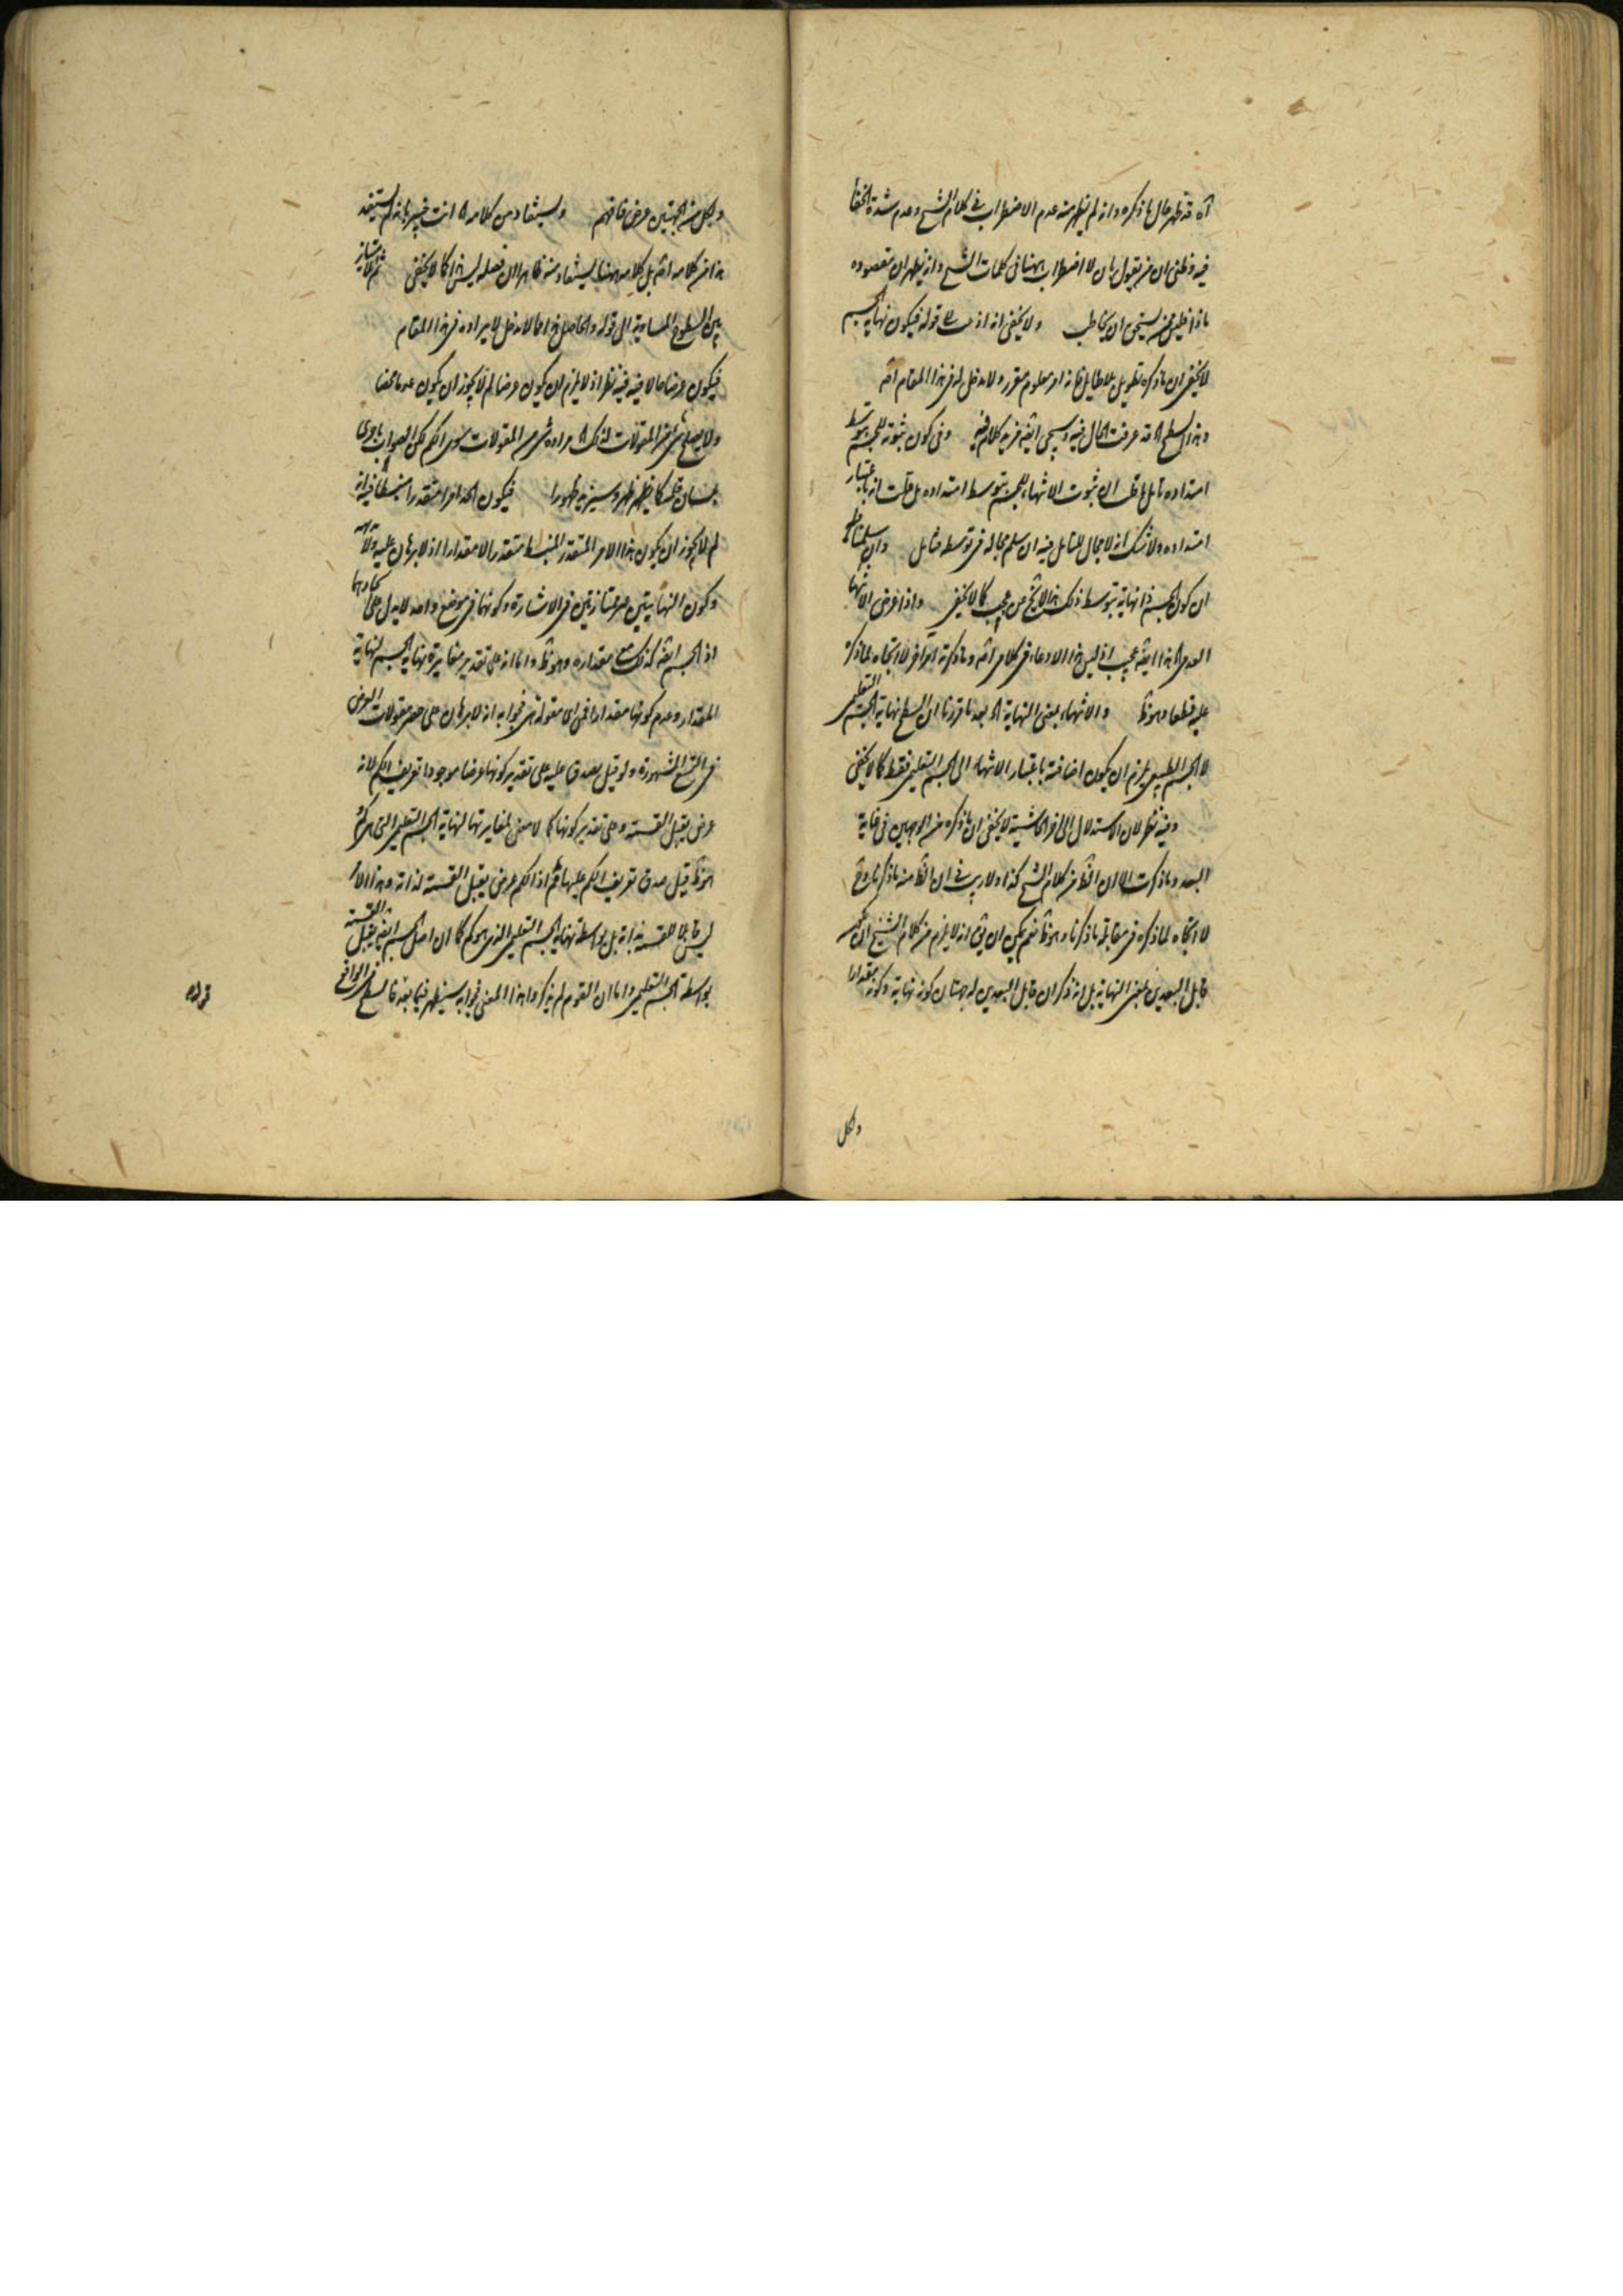 آه قد ظهر حال ما ذكره وانه لم يظهر منه عدم الاضطراب في كلام الشيخ وعدم شدة الخفا
فيه وظني ان من يقول بان لا اضطراب ههنا في كلمات الشيخ وانه يظهر ان مقصوده
ماذا فليس ممن يستحق ان يخاطب ولا يخفى انه اذ قوله فيكون نهاية الجسم
لا يخفى ان ما ذكره تطويل بلا طايل فانه امر معلوم مقرر ولا مدخل له في هذا المقام اصلا
وهذا السطح اه قد عرفت الحال فيه وسيجئ ايضا مزيد كلام فيه وفي كون ثبوته للجسم بتوسط
امتداده تامل بل قلت ان ثبوت الانتهاء للجسم بتوسط امتداده بل قلت انه باعتبار
امتداده ولا شك انه لا مجال للتامل فيه ان سلم مجاله في توسطه فتامل وان سلمنا
ان كون الجسم ذا نهاية بتوسط ذلك هذا لا يخ من عجب كما لا يخفى واذا عرض الانتهاء
المدعى هذا ايضا عجب اذ ليس هذا الادعاء في كلامي اصلا وما ذكرته امر اخر لا اتجاه لما ذكره
عليه قطعا وهو ظ والانتهاء بمعنى النهاية اه بعد ما قررنا ان السطح نهاية الجسم التعليمي
لا الجسم الطبيعي يلزم ان يكون اضافته باعتبار الانتهاء الى الجسم التعليمي فقط كما لا يخفى
وفيه نظر لان الاستدلال الى اخر الحاشية لا يخفى ان ما ذكره من الوجهين في غاية
البعد وما ذكرت الا ان الظ من كلام الشيخ كذا ولا ريب في ان الظ منه ما ذكرنا وح
لا اتجاه لما ذكره في مقابلة ما ذكرنا وهو ظ نعم يمكن ان يق انه لا يلزم من كلام الشيخ ان
قابل البعدين بمعنى النهاية بل انه ذكر ان قابل البعدين له جهتان كونه نهاية وكونه مقدارا
ولكل
ولكل من الجهتين عرض فافهم ويستفاد من كلامه اه انت خبير بانه لم يستفد
هذا من كلامه اصلا بل كلامه ههنا يستفاد منه ظاهرا ان فصله ليس هذا كما لا يخفى ثم لا تمايز
بين السطوح المساوية الى قوله والحاصل هذا مما لا مدخل لايراده في هذا المقام
فيكون عرضا حالا فيه فيه نظر اذ لا يلزم ان يكون عرضا لم لا يجوز ان يكون عدما محضا
ولا يصلح شئ من المقولات لذلك اه مراده شئ من المقولات سوى الكم لكن الصواب ما جرى
بلسان قلمه كما يظهر ظهر وسيزيد ظهورا فيكون الحد امرا متقدرا منبسطا فيه انه
لم لا يجوز ان يكون هذا الامر المتقدر المنبسط متقدرا لا مقدارا اذ لا برهان عليه ولا بداهة
وكون النهايتين غير ممتازتين في الاشارة وكونهما في موضع واحد لا يدل على اتحادهما
اذ الجسم ايضا كذلك مع مقداره وهو ظ واما انه على تقدير مغايرة نهاية الجسم لنهاية
المقدار وعدم كونها مقدارا فمن اى مقولة هى فجوابه انه لا برهان على حصر مقولات العرض
في التسع المشهورة ولو قيل يصدق عليه على تقدير كونها عرضا موجودا تعريف الكم لانه
عرض يقبل القسمة وعلى تقدير كونها كما لا معنى لمغايرتها لنهاية الجسم التعليمي التى هى كم
هو ظ قيل صدق تعريف الكم عليها ثم اذ الكم عرض يقبل القسمة لذاته وهذا الامر
ليس قابلا للقسمة بذاته بل بواسطة نهاية الجسم التعليمي الذى هو كم كما ان اصل الجسم ايضا يقبل القسمة
بواسطة الجسم التعليمي واما ان القوم لم يذكروا هذا المعنى فجوابه سيظهر فيما بعد فالسطح في الواقع
قوله